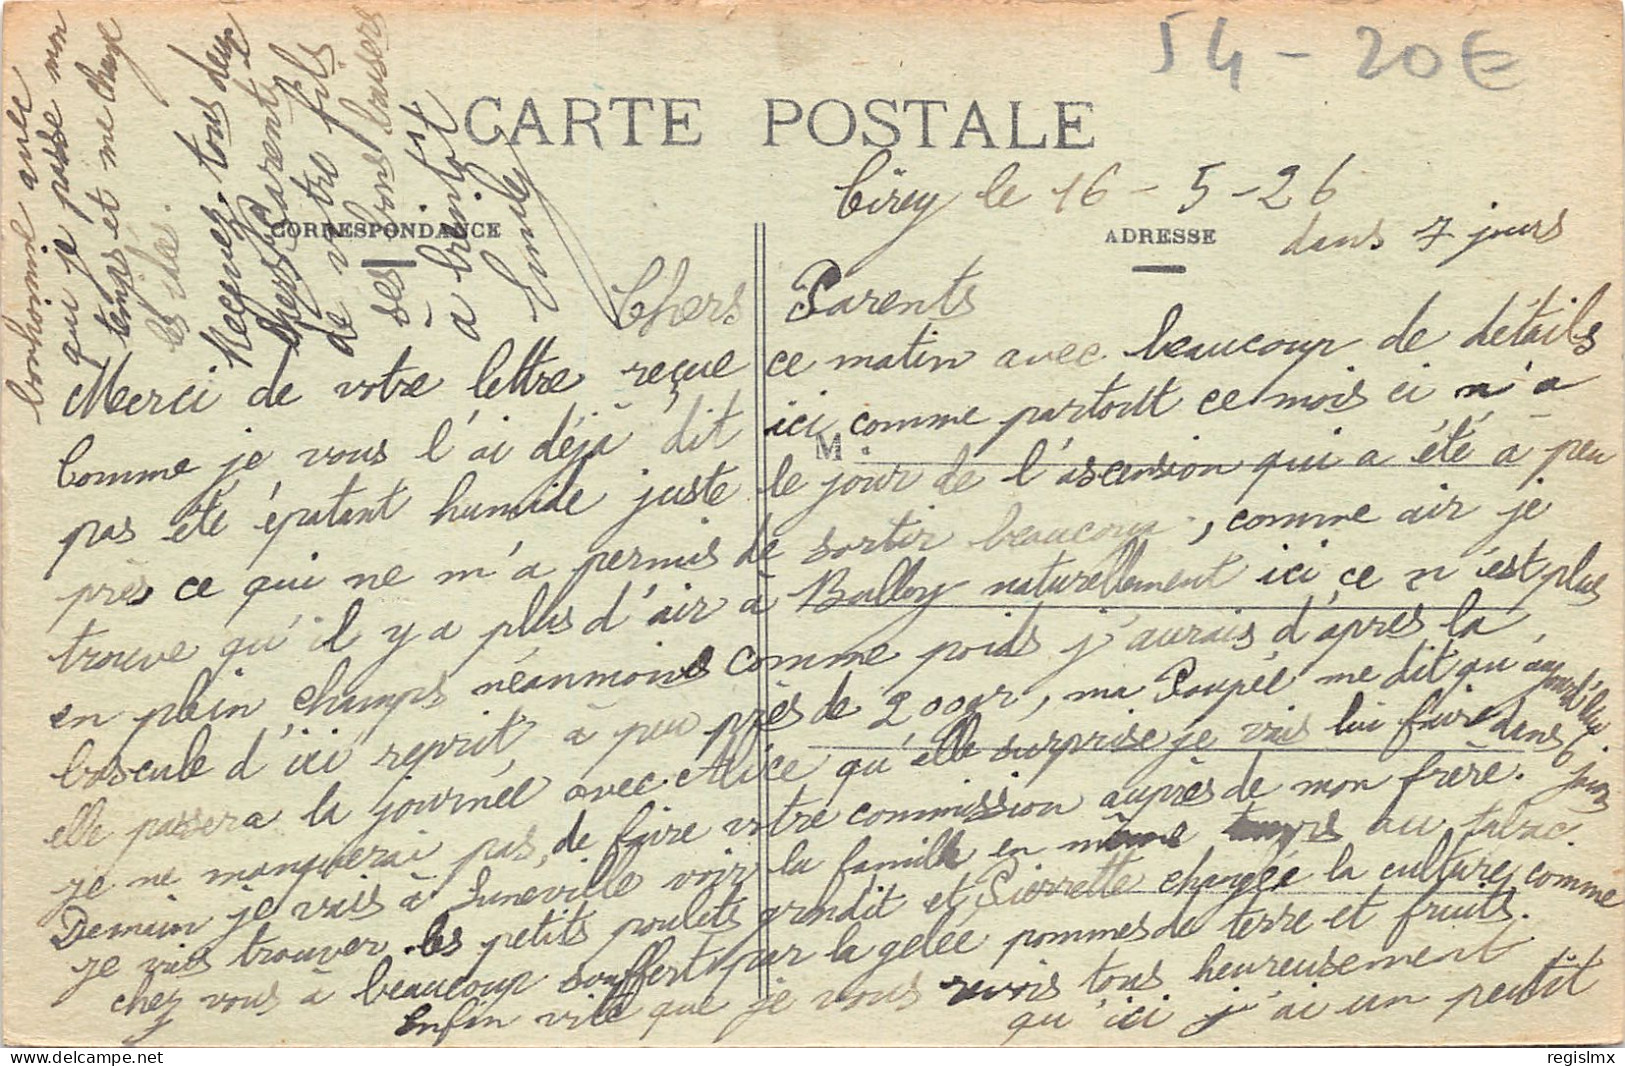 54 - 20€
CARTE POSTALE
CORRESPONDANCE
ADRESSE
M
Cirey le 16 - 5 - 26
dans 7 jours
Chers Parents
Merci de votre lettre reçue ce matin avec beaucoup de détails
Comme je vous l'ai déjà dit ici comme partout ce mois ci n'a
pas été épatant humide juste le jour de l'ascension qui a été à peu
près ce qui ne m'a permis de sortir beaucoup, comme air je
trouve qu'il y a plus d'air à Bulloy naturellement ici ce n'est plus
en plein champs néanmoins comme poids j'aurais d'après la
bascule d'ici reprit à peu près de 200gr, ma Poupée me dit qu'aujourd'hui
elle passera la journée avec Alice qu'elle surprise je vais lui faire dans 6 jours
je ne manquerai pas de faire votre commission auprès de mon frère.
Demain je vais à Luneville voir la famille en même temps au tabac.
je vais trouver les petits poulets grandit et Pierrette changée la culture comme
chez vous à beaucoup souffert par la gelée pommes de terre et fruits.
Enfin vite que je vous revois tous heureusement
qu'ici j'ai un petit
bonhomme avec
qui je passe mon
temps et me change
les idées.
Recevez, tous deux
chers Parents
de votre fils
ses bons baisers
à bientôt
Emile
regislmx